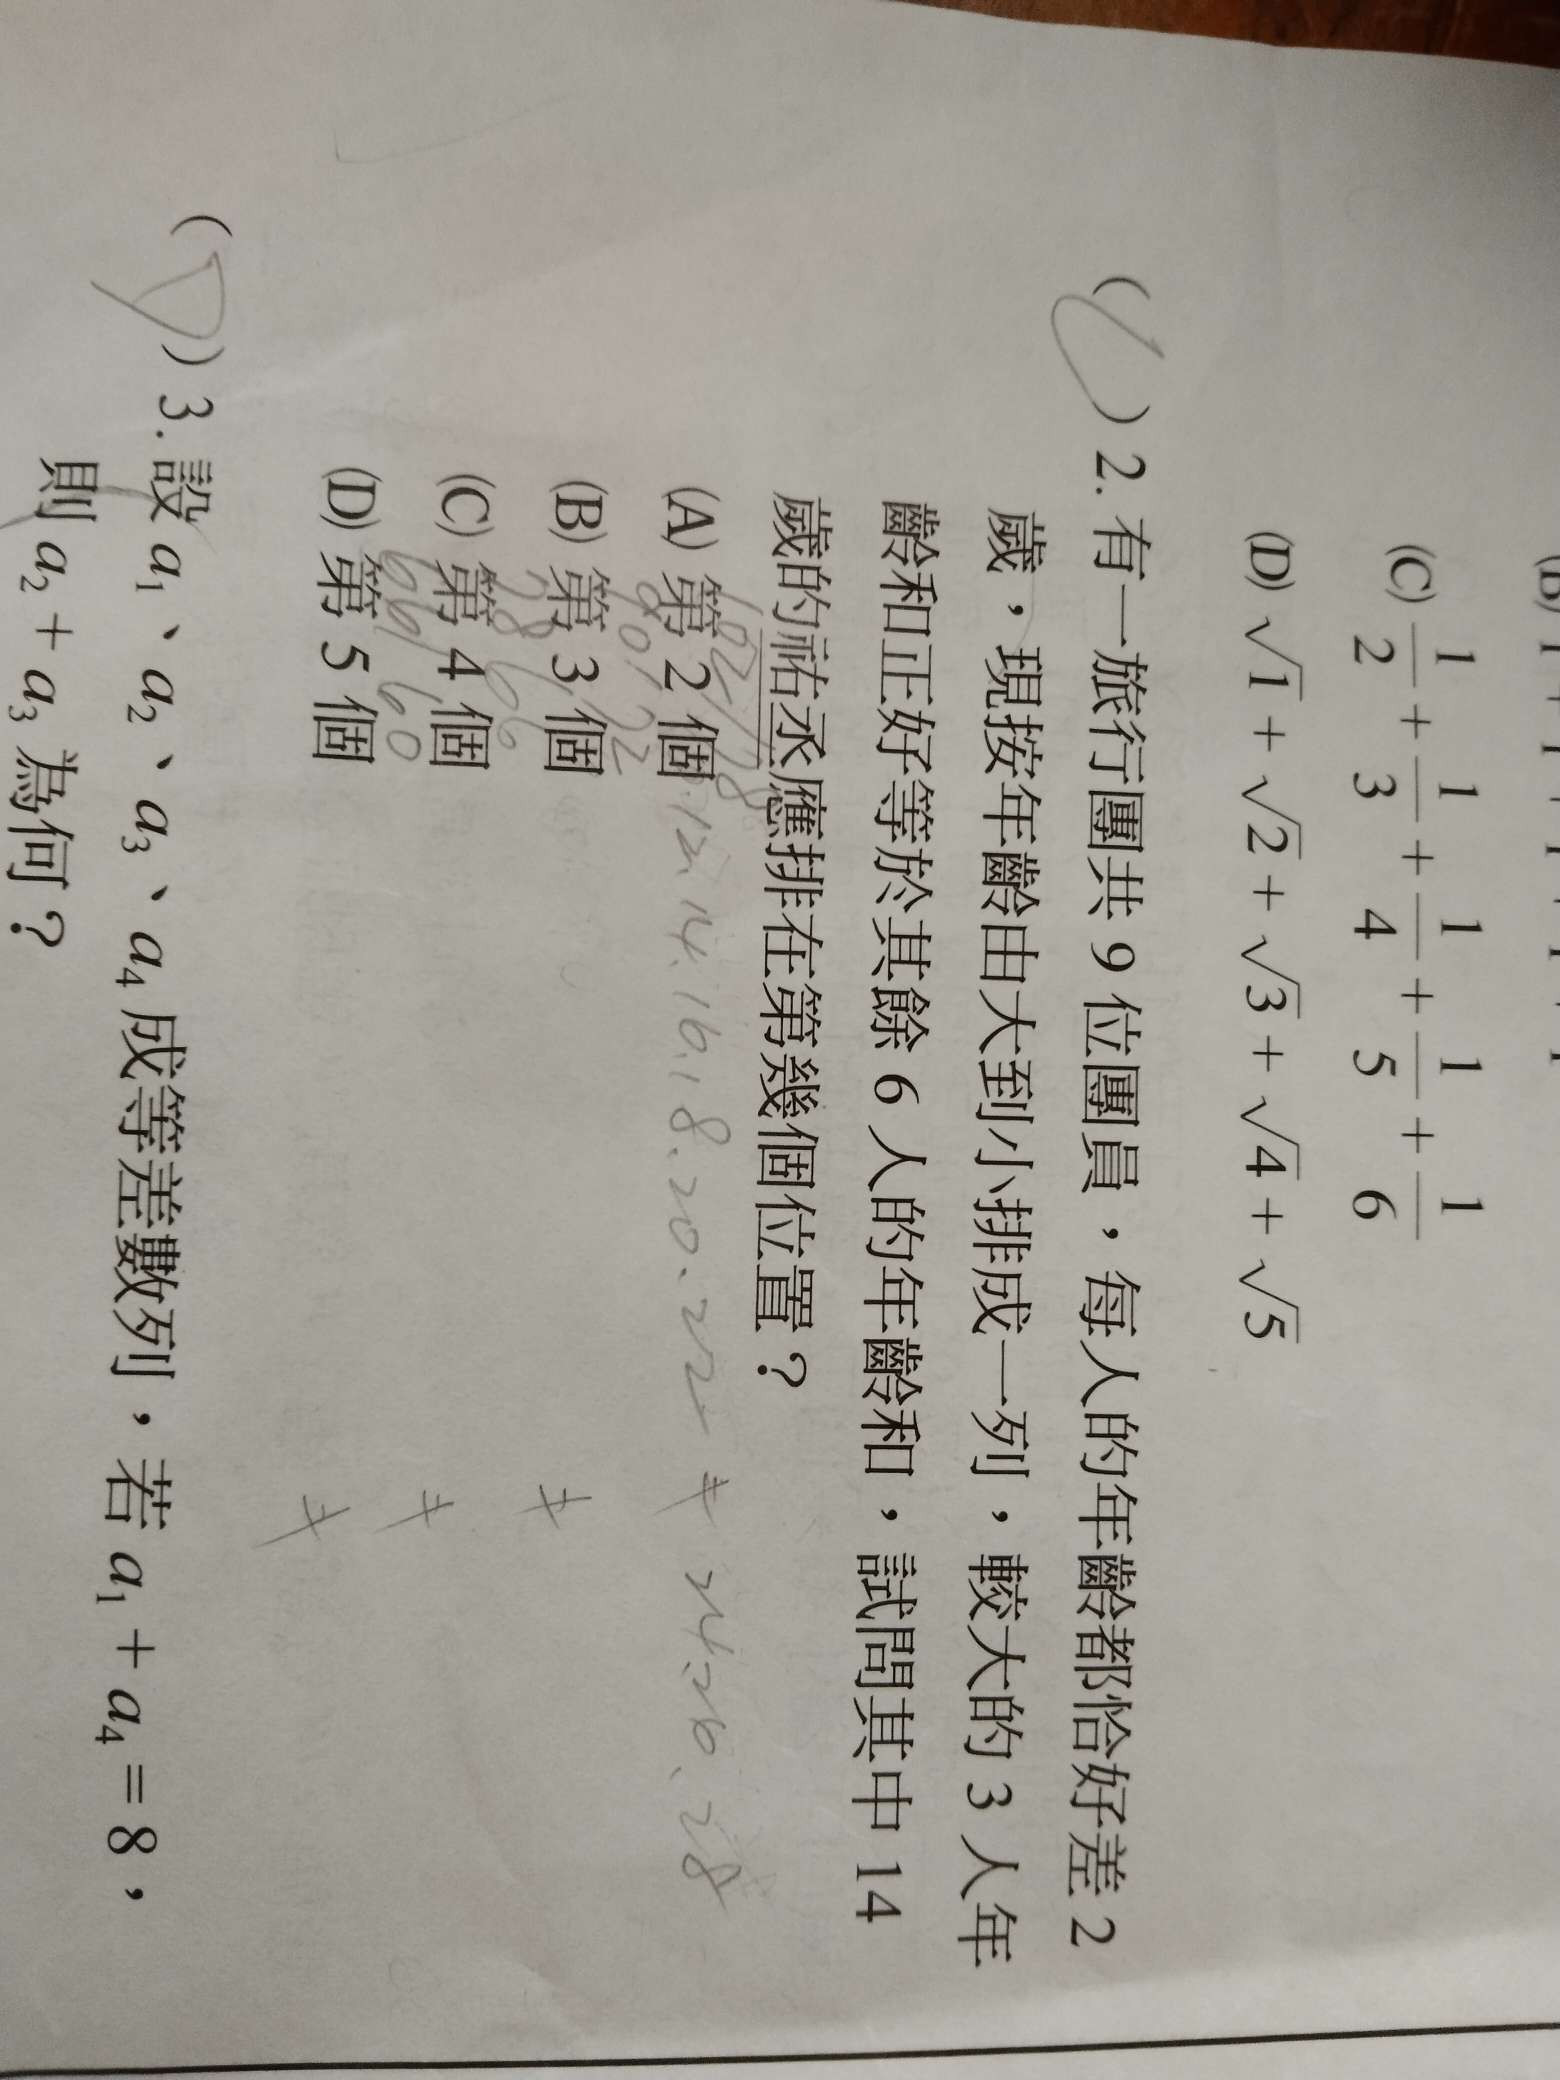 (C) 1/2 + 1/3 + 1/4 + 1/5 + 1/6
(D) √1 + √2 + √3 + √4 + √5
( ) 2. 有一旅行團共 9 位團員，每人的年齡都恰好差 2
歲，現按年齡由大到小排成一列，較大的 3 人年
齡和正好等於其餘 6 人的年齡和，試問其中 14
歲的祐丞應排在第幾個位置？
(A) 第 2 個
12.14.16.18.20.22 ≠ 24.26.28
(B) 第 3 個
≠
(C) 第 4 個
≠
(D) 第 5 個
≠
(D) 3. 設 a₁、a₂、a₃、a₄ 成等差數列，若 a₁ + a₄ = 8，
則 a₂ + a₃ 為何？